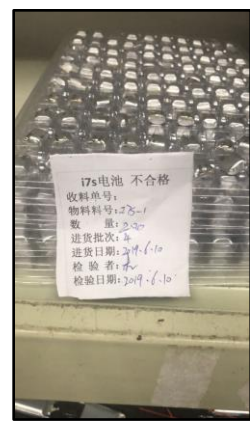 i7s电池 不合格
收料单号:
物料料号:
数 量:
进货批次:
进货日期:2019.6.10
检 验 者:
检验日期:2019.6.10